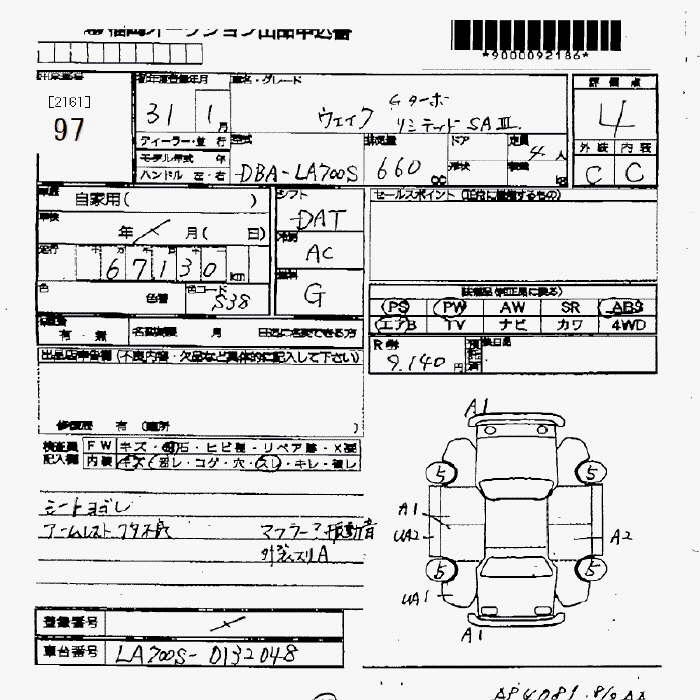 *9000092186*
[2161]
97
初年度登録年月
車名・グレード
31 1月
ウェイク
Gターボ
リミテッド SAⅢ
評価点
4
外装 内装
C C
ディーラー・並行
モデル年式 年
ハンドル 左・右
型式
DBA-LA700S
排気量
660 cc
ドア
形状
定員
4人
自家用( )
車検
年 月( 日)
走行
67130 km
色
色替
色コード
S38
シフト
DAT
冷房
AC
燃料
G
セールスポイント
PS PW AW SR ABS
エアB TV ナビ カワ 4WD
R券
9.140円
有・無
月
出品店申告欄(不良内容・欠品など具体的に記入して下さい)
修復歴 有 (箇所
検査員
記入欄
FW キズ・飛石・ヒビ種・リペア跡・X要
内装 キズ・コゲ・穴・スレ・キレ
シートヨゴレ
アームレストフタ不良
マフラー
外装スリA
A1
5 5
A1
UA2
A2
5 5
UA1
A1
登録番号
車台番号
LA700S-0132048